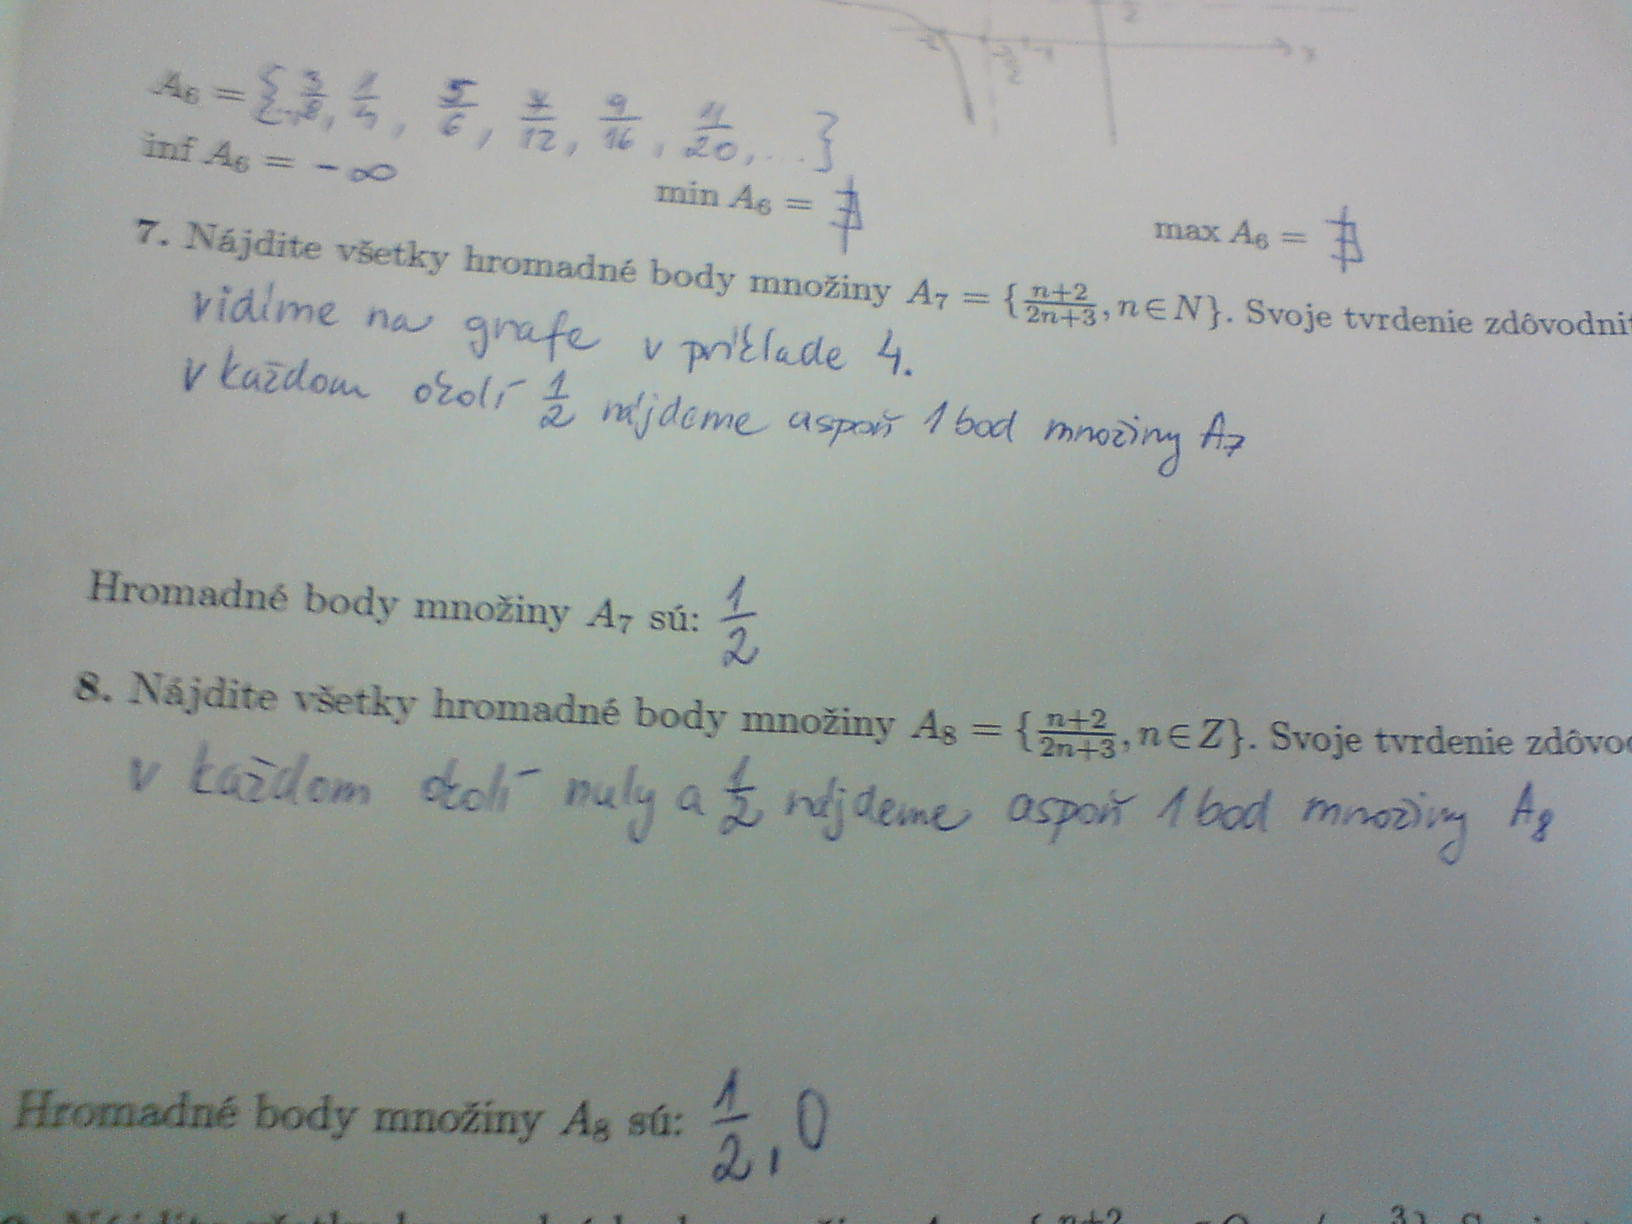 A₆ = {.., 3/8, 1/4, 5/6, 7/12, 9/16, 11/20, ...}
inf A₆ = -∞ min A₆ = ∄ max A₆ = ∄
7. Nájdite všetky hromadné body množiny A₇ = {n+2/2n+3, n∈N}. Svoje tvrdenie zdôvodnit
vidíme na grafe v príklade 4.
v každom okolí 1/2 nájdeme aspoň 1 bod množiny A₇
Hromadné body množiny A₇ sú: 1/2
8. Nájdite všetky hromadné body množiny A₈ = {n+2/2n+3, n∈Z}. Svoje tvrdenie zdôvod
v každom okolí nuly a 1/2 nájdeme aspoň 1 bod množiny A₈
Hromadné body množiny A₈ sú: 1/2, 0